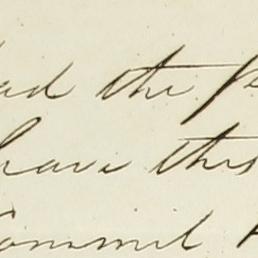 had the
have this
Commit